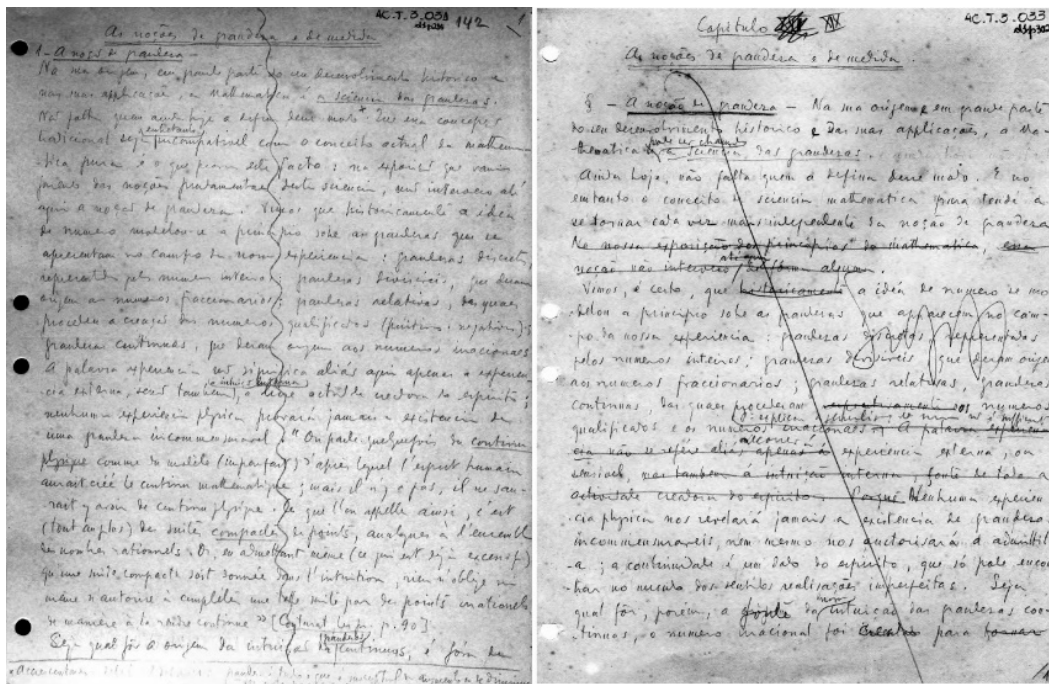 AC.T.3.031
142
1
As noções de grandeza e de medida
1 - A noção de grandeza -
Na sua origem, em grande parte do seu desenvolvimento historico e
nas suas applicação, a Mathematica é a sciencia das grandezas.
Não falta quem ainda hoje a defina deste modo. Que essa concepção
tradicional seja incompativel com o conceito actual da mathema-
entretanto
tica pura é o que prova este facto: na exposição que vamos
fazendo das noções fundamentaes desta sciencia, não interveio até
aqui a noção de grandeza. Vimos que historicamente a idéa
de numero modelou-se a principio sobre as grandezas que se
apresentam no campo da nossa experiencia: grandezas discretas,
representadas pelos numeros inteiros; grandezas divisiveis, que deram
origem aos numeros fraccionarios; grandezas relativas, das quaes
procedeu a creação dos numeros qualificados (positivos e negativos);
grandezas continuas, que deram origem aos numeros irracionaes
A palavra experiencia não significa aliás aqui apenas a experien-
cia externa, senão tambem, a actividade creadora do espirito;
nenhuma experiencia physica provará jamais a existencia de
uma grandeza incommensuravel. "On parle quelquefois du continu
physique comme du modèle (imparfait) d'après lequel l'esprit humain
aurait créé le continu mathématique; mais il n'y a pas, il ne sau-
rait y avoir de continu physique. Ce que l'on appelle ainsi, c'est
(tout au plus) des suites compactes de points, analogues à l'ensemble
des nombres rationnels. Or, en admettant même (ce qui est déjà excessif)
qu'une suite compacte soit donnée dans l'intuition, rien n'oblige ni
même n'autorise à compléter une telle suite par des points irrationnels
de manière à la rendre continue" [Couturat p. 90]
Seja qual fôr a origem da intuição das grandezas continuas, é fóra de
AC.T.3.033
Capitulo XIX
As noções de grandeza e de medida.
§ - A noção de grandeza - Na sua origem e em grande parte
do seu desenvolvimento historico e das suas applicações, a Ma-
thematica pode ser chamada a sciencia das grandezas.
Ainda hoje, não falta quem a defina desse modo. E no
emtanto o conceito de sciencia mathematica pura tende a
se tornar cada vez mais independente da noção de grandeza
Na nossa exposição dos principios da mathematica, essa
noção não interveio de fórma alguma.
Vimos, é certo, que historicamente a idéa de numero se mo-
delou a principio sobre as grandezas que apparecem no cam-
po da nossa experiencia: grandezas discretas, representadas
pelos numeros inteiros; grandezas divisiveis, que deram origem
aos numeros fraccionarios; grandezas relativas, grandezas
continuas, das quaes procederam respectivamente os numeros
qualificados e os numeros irracionaes. A palavra experien-
cia não se refere aliás apenas á experiencia externa, ou
sensivel, mas tambem á intuição interna, fonte de toda a
actividade creadora do espirito. Porque Nenhuma experien-
cia physica nos revelará jamais a existencia de grandezas
incommensuraveis, nem mesmo nos auctorisará a admitti-
-a; a continuidade é um dado do espirito, que só póde encon-
trar no mundo dos sentidos realisações imperfeitas. Seja
qual fôr, porém, a fonte da intuição das grandezas con-
tinuas, o numero irracional foi creado para